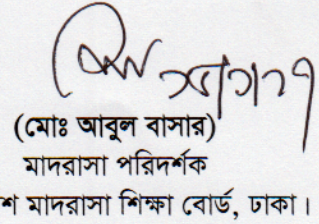 (মোঃ আবুল বাসার)
মাদরাসা পরিদর্শক
শ মাদরাসা শিক্ষা বোর্ড, ঢাকা।